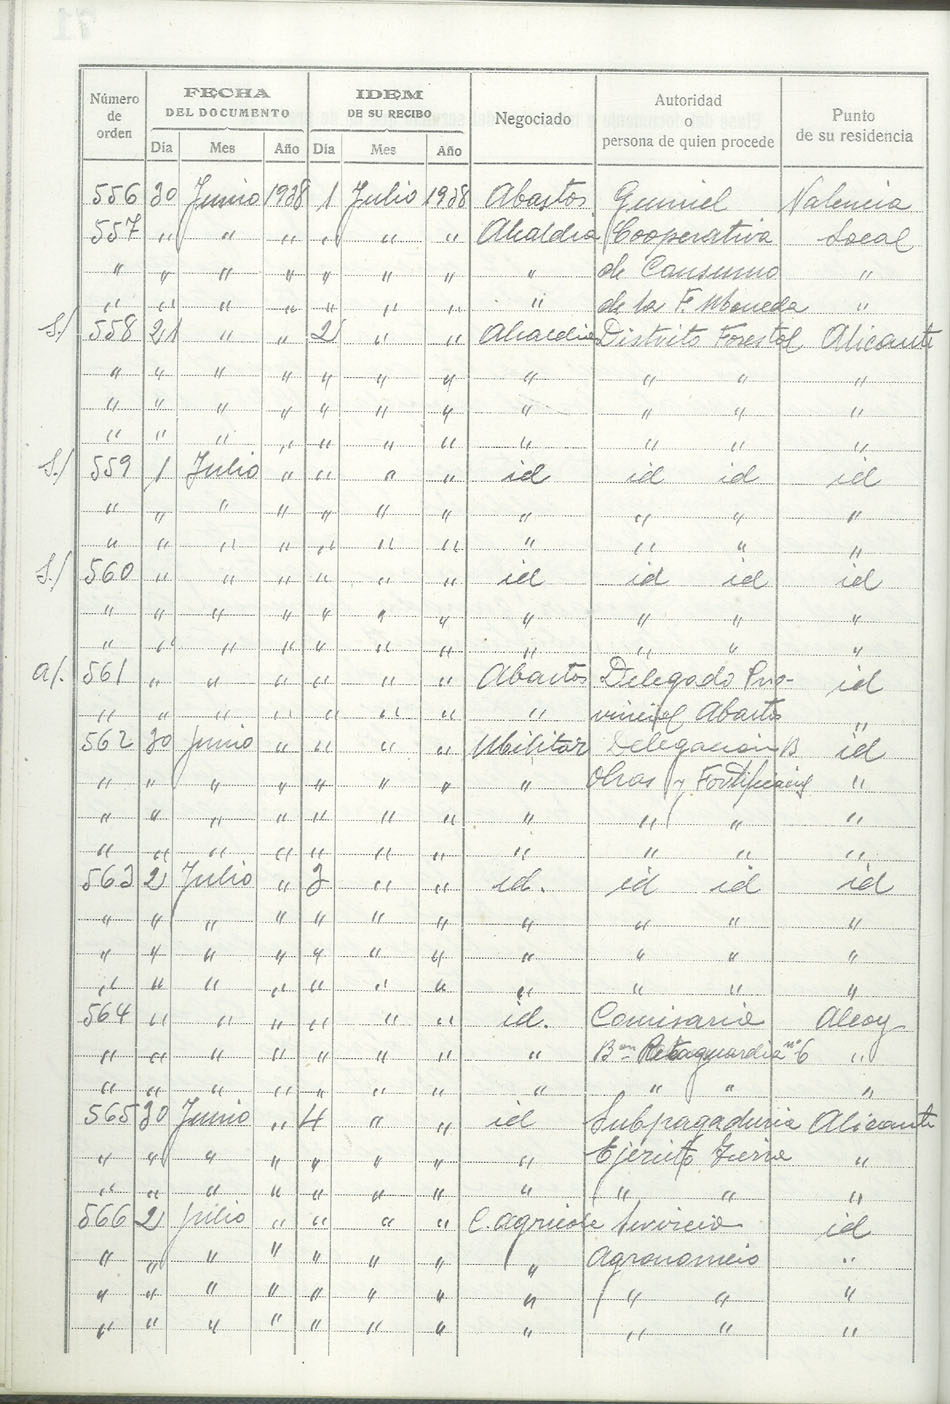 Número de orden | FECHA DEL DOCUMENTO | IDEM DE SU RECIBO | Negociado | Autoridad o persona de quien procede | Punto de su residencia
Día | Mes | Año | Día | Mes | Año
556 30 Junio 1938 1 Julio 1938 Abastos Valencia
557 " " " " " " Alcaldia Cooperativa Local
" " " " " " " " de Consumo "
" " " " " " " " de la F. Moneda "
S./ 558 21 " " 2 " " Alcaldia Distrito Forestal Alicante
" " " " " " " " " " "
" " " " " " " " " " "
" " " " " " " " " " "
S./ 559 1 Julio " " " " id id id id
" " " " " " " " " " "
" " " " " " " " " " "
S./ 560 " " " " " " id id id id
" " " " " " " " " " "
" " " " " " " " " " "
a/. 561 " " " " " " Abastos Delegado Pro- id
" " " " " " " " vincial Abastos "
562 30 Junio " " " " Militar Delegacion B. id
" " " " " " " " Obras y Fortificacions "
" " " " " " " " " " "
" " " " " " " " " " "
563 2 Julio " 3 " " id. id id id
" " " " " " " " " " "
" " " " " " " " " " "
" " " " " " " " " " "
564 " " " " " " id. Comisaria Alcoy
" " " " " " " " Bon Retaguardia nº 6 "
" " " " " " " " " " "
565 30 Junio " 4 " " id Subpagaduria Alicante
" " " " " " " " Ejército Tierra "
" " " " " " " " " " "
566 2 Julio " " " " C. agricola Servicio id
" " " " " " " " Agronomico "
" " " " " " " " " " "
" " " " " " " " " " "